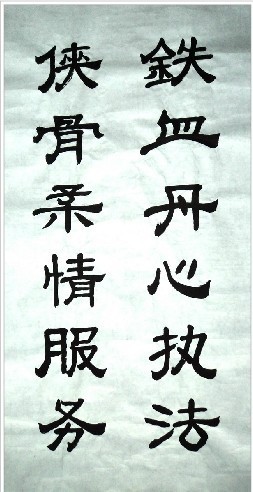 鉄血丹心执法
侠骨柔情服务